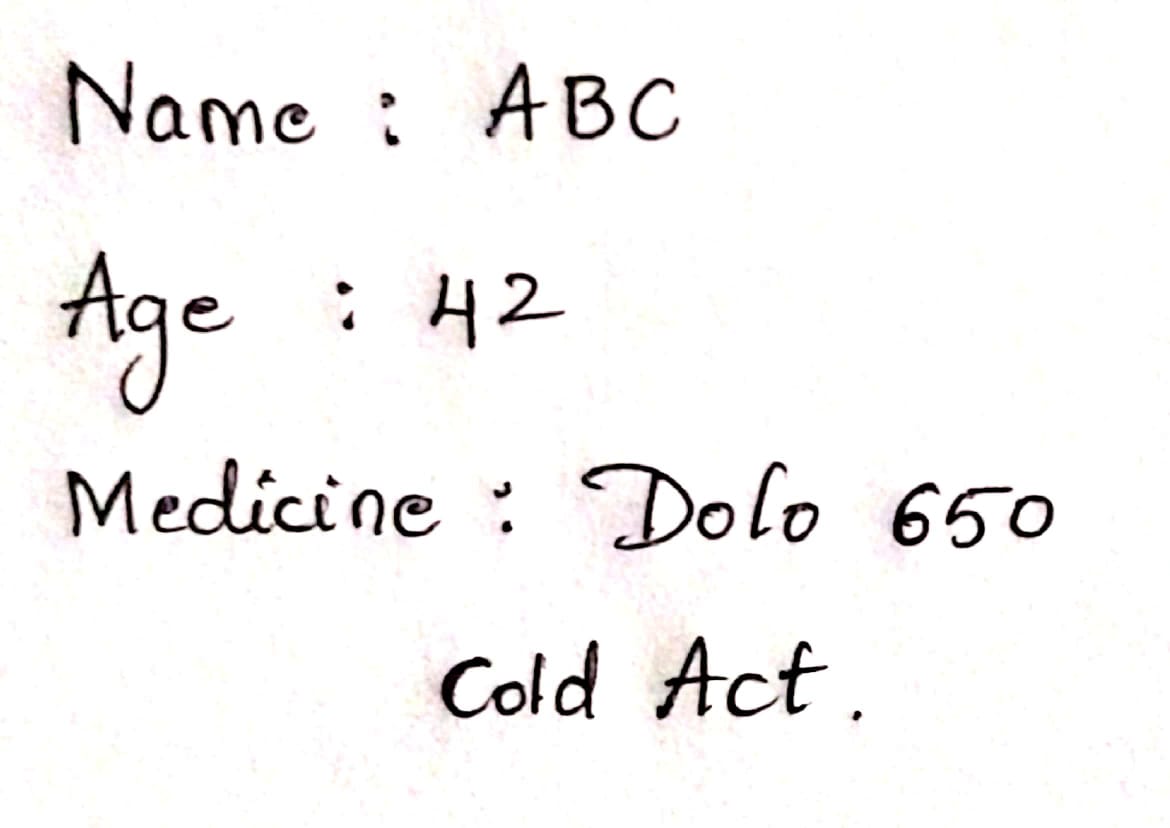 Name : ABC
Age : 42
Medicine : Dolo 650
Cold Act.